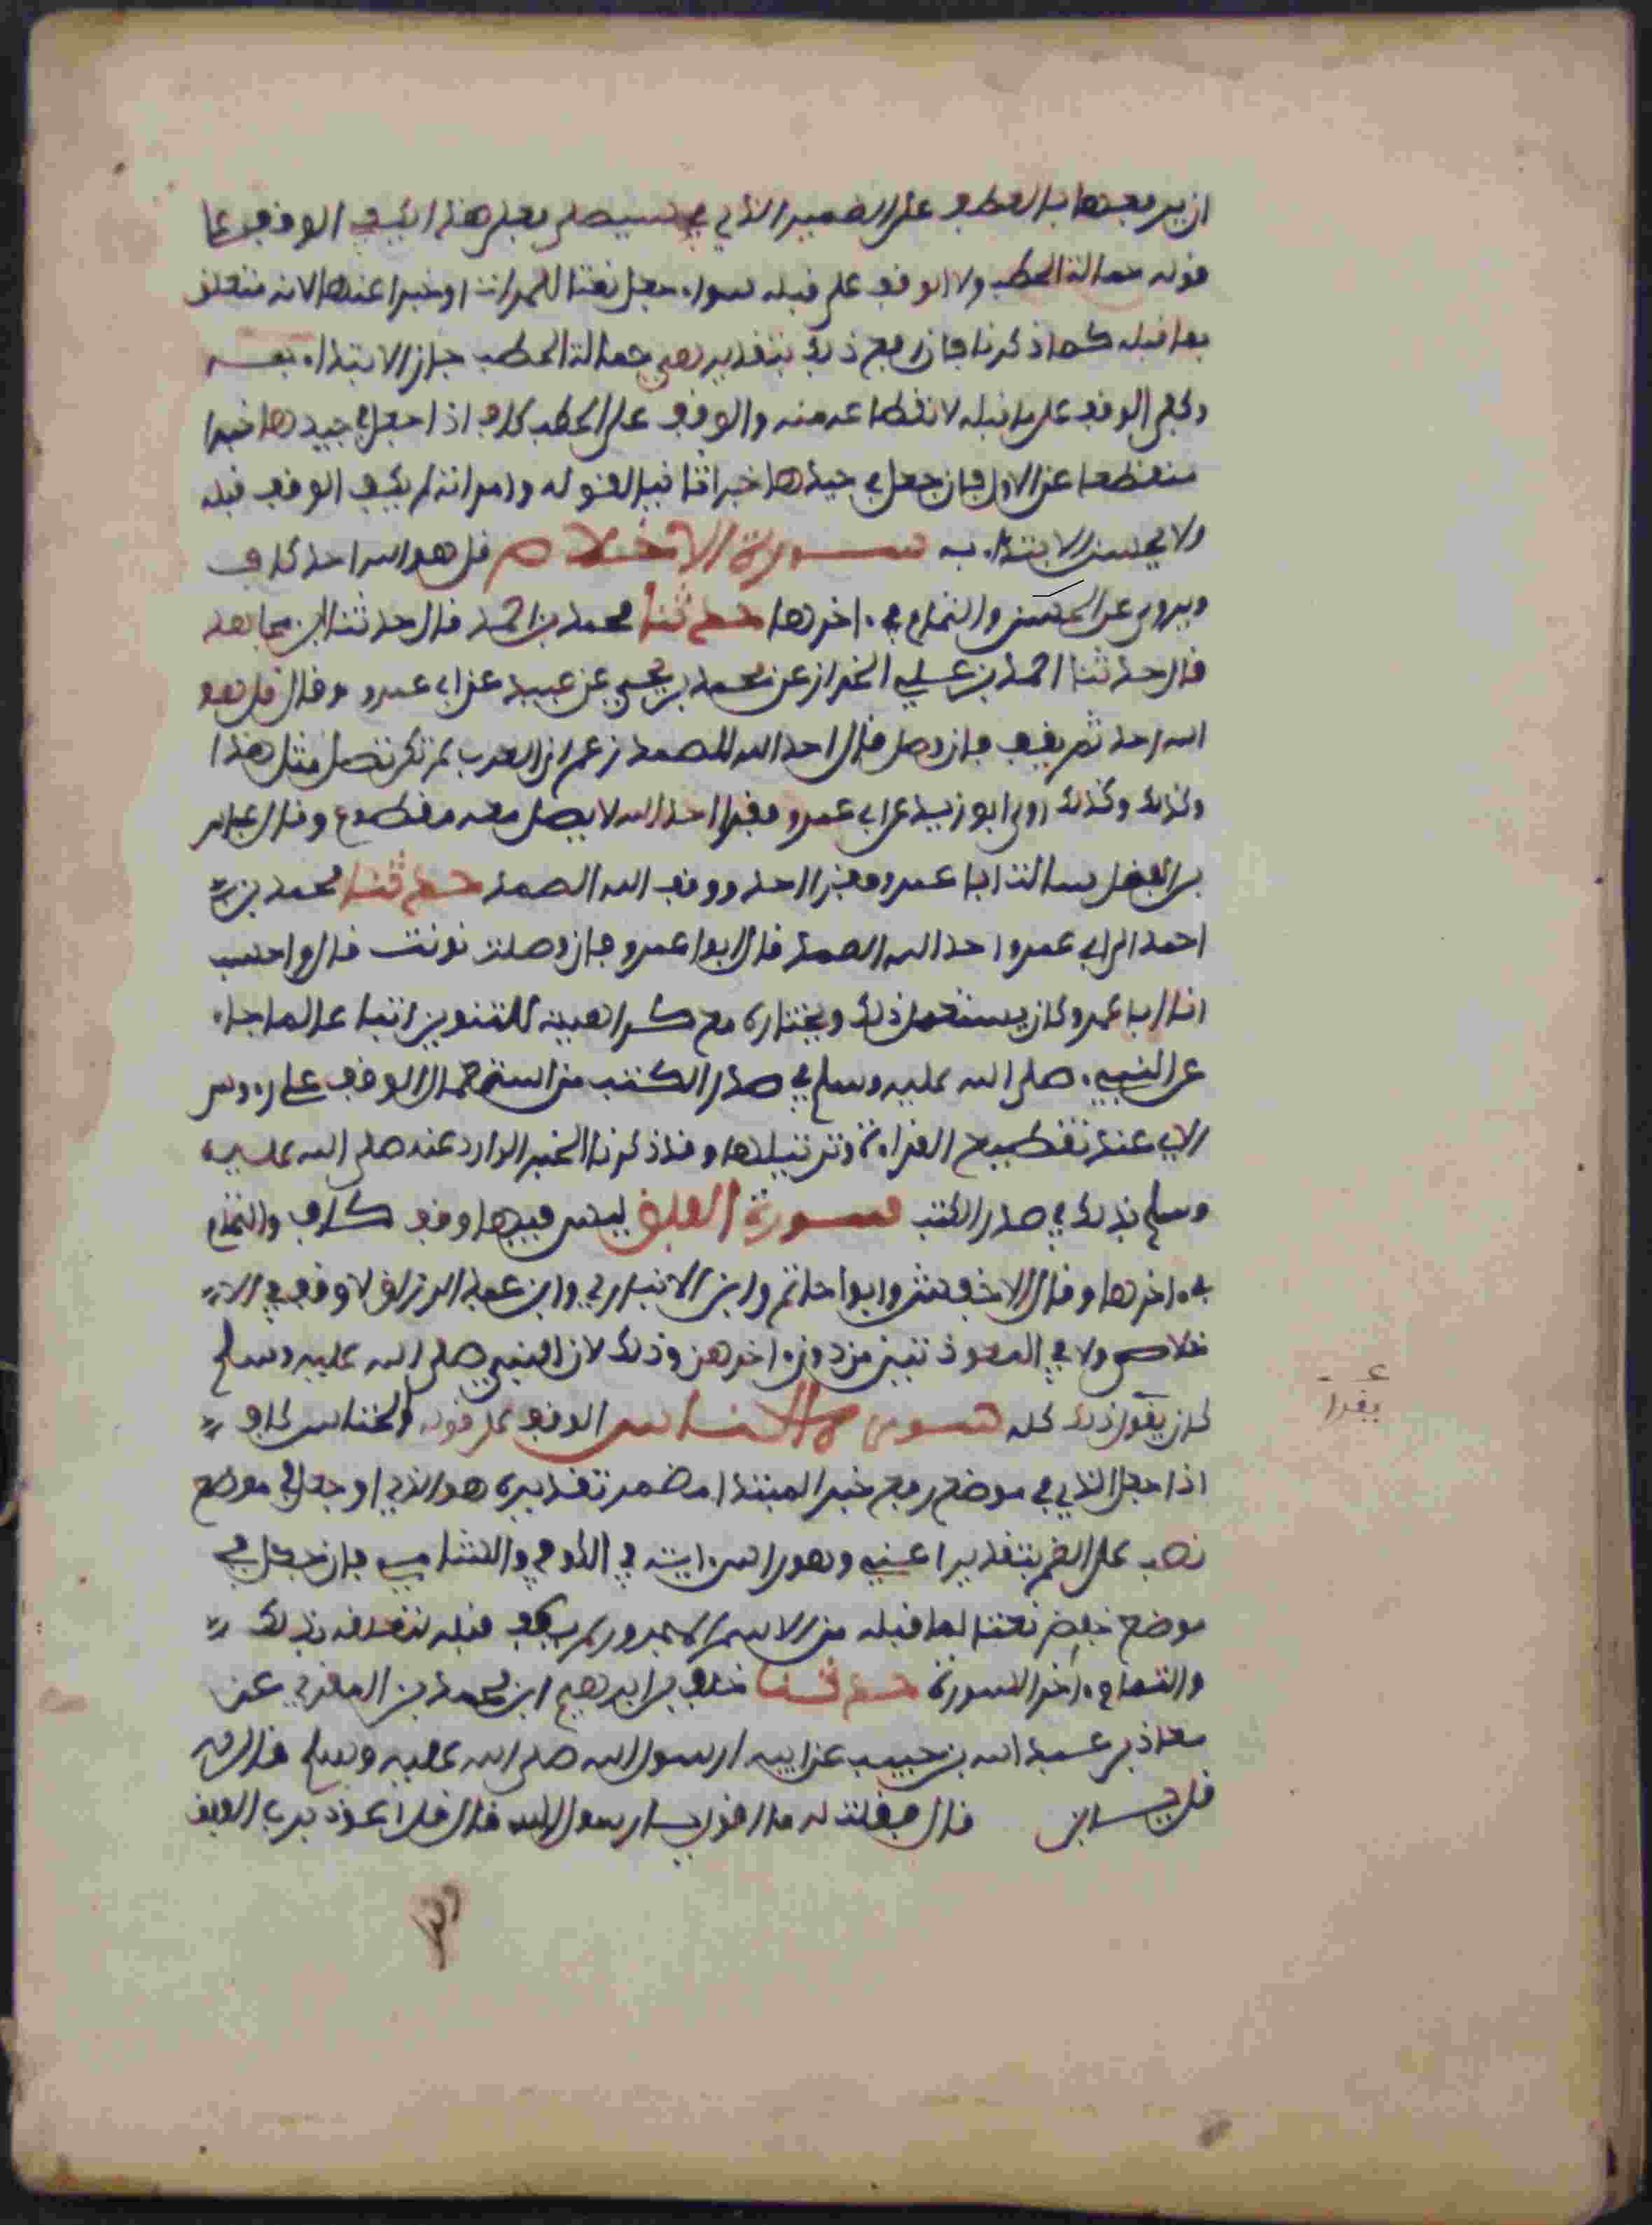 ان يرفعها بالعطف على الضمير الذي في سيصلى فعلى هذا يكفي الوقف على
قوله حمالة الحطب ولا الوقف على قبله سواء جعل نعتا للمرأت او خبرا عنها لانه متعلق
بما قبله كما ذكرنا فان رفع ذلك بتقدير هي حمالة الحطب جاز الابتداء به
وكفى الوقف على ما قبله لانقطاعه منه والوقف على الحطب كاف اذا جعل في جيدها خبرا
منقطعا عن الاول فان جعل في جيدها خبرا ثانيا لقوله وامراته لم يكف الوقف قبله
ولا يحسن الابتداء به سورة الاخلاص قل هو الله احد كاف
ويروى عن الحسن والتمام في ءاخرها حدثنا محمد بن احمد قال حدثنا ابن مجاهد
قال حدثنا احمد بن علي الخزاز عن محمد بن يحيى عن عبيد عن ابي عمرو وقال قل هو
الله احد ثم يقف فان وصل قال احد الله الصمد زعم ان العرب لم تكن تصل مثل هذا
وكذلك وكذلك روى ابو زيد عن ابي عمرو فقرا احد الله لا يصل معه مقطوع وقال عباس
بن الفضل سالت ابا عمرو فقرا احد ووقف الله الصمد حدثنا محمد بن
احمد الى ابي عمرو احد الله الصمد قال ابوا عمرو فان وصلت نونت قال واحسب
ان ابا عمرو كان يستعمل ذلك ويختاره مع كراهية للتنوين اتباعا لما جاء
عن النبيء صلى الله عليه وسلم في صدر الكتب من استعمال الوقف على رءوس
الاي عند تقطيع القراءة وترتيلها وقد ذكرنا الخبر الوارد عنه صلى الله عليه
وسلم بذلك في صدر الكتب سورة الفلق ليس فيها وقف كاف والتمام
في ءاخرها وقال الاخفش وابوا حاتم وابن الانباري وابن عبد الرزاق لا وقف في الا
خلاص ولا في المعوذتين من دون ءاخرهن وذلك لان النبي صلى الله عليه وسلم
كان يقول ذلك كله سورة الناس الوقف على قوله الخناس كاف
اذا جعل الذي في موضع رفع خبر المبتدا مضمر تقديره هو الذي او جعل في موضع
نصب على الذم بتقدير اعني وهو راس ءاية في الكوفي والشامي فان جعل في
موضع خفض نعتا لما قبله من الاسم المجرور لم يكف قبله لتعلقه بذلك
والتمام ءاخر السورة حدثنا خلف بن ابرهيم ابن محمد بن المقري عن
معاذ بن عبد الله بن خبيب عن ابيه ان رسول الله صلى الله عليه وسلم قال له
قل قال فقلت له ما اقول يا رسول الله قال قل اعوذ برب الفلق
يقرا